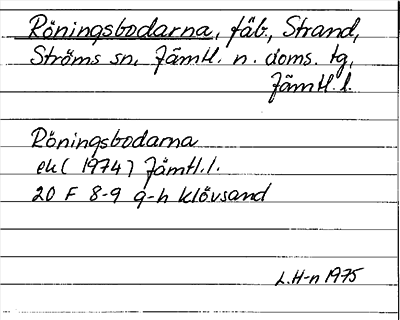 Röningsbodarna, fäb., Strand,
Ströms sn, Jämtl. n. doms. tg,
Jämtl. l.
Röningsbodarna
ek (1974) Jämtl. l.
20 F 8-9 g-h Klövsand
L.H-n 1975